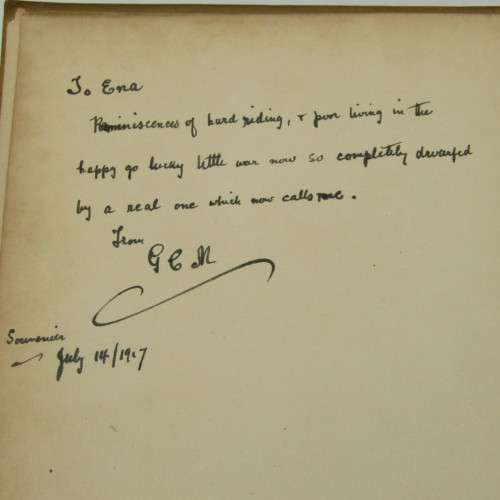 To Ena
Reminiscences of hard riding, & poor living in the
happy go lucky little war now so completely dwarfed
by a real one which now calls me.
From
G C M
Souvenir
July 14/1917